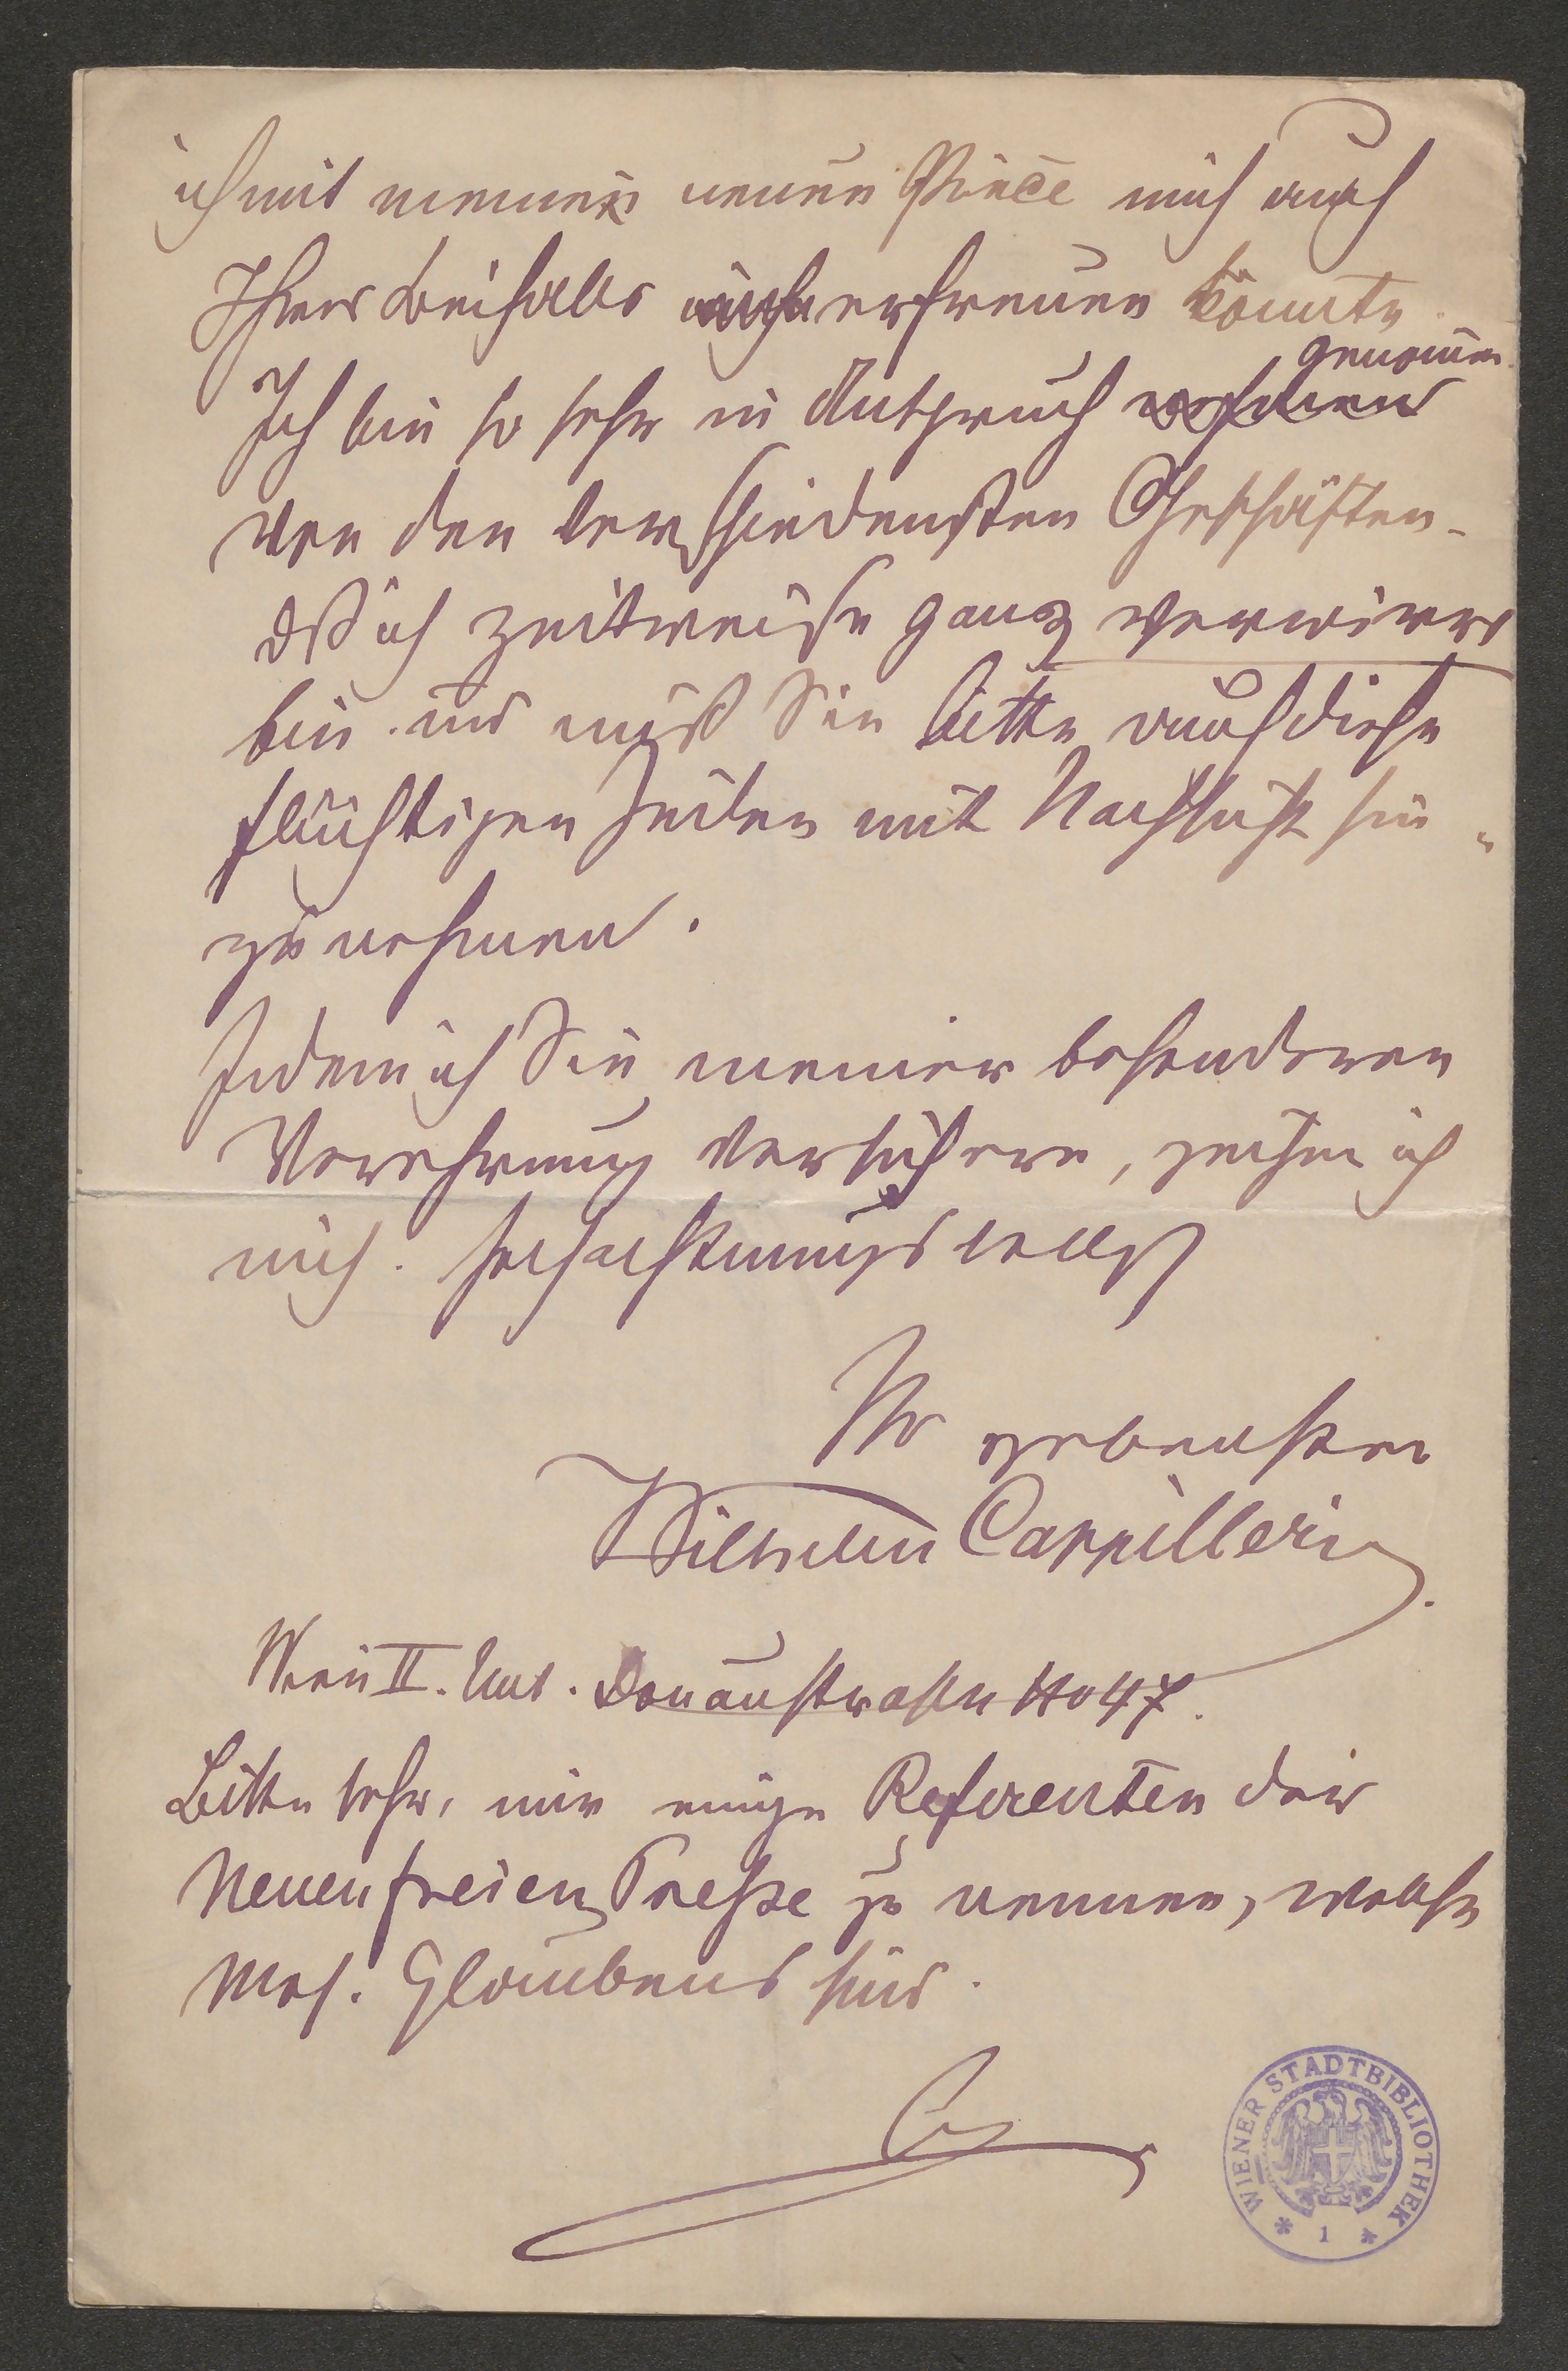 ich mit meiner neuen Pièce mich auch
Ihres Beifalles erfreuen könnte.
Ich bin so sehr in Anspruch genommen
von den verschiedensten Geschäften –
dß ich zeitweise ganz verwirrt
bin. und muß Sie bitte auch diese
flüchtigen Zeilen mit Nachsicht hin-
zu nehmen.
Indem ich Sie meiner besonderen
Verehrung versichere, zeichne ich
mich. hochachtungsvollst
Ihr ergebenster
Wilhelm Cappilleri
Wien II. Unt. Donaustrasse No 47.
Bitte sehr, mir einige Referenten der
Neuen freien Presse zu nennen, welche
mos. Glaubens sind.
C
WIENER STADTBIBLIOTHEK
* 1 *